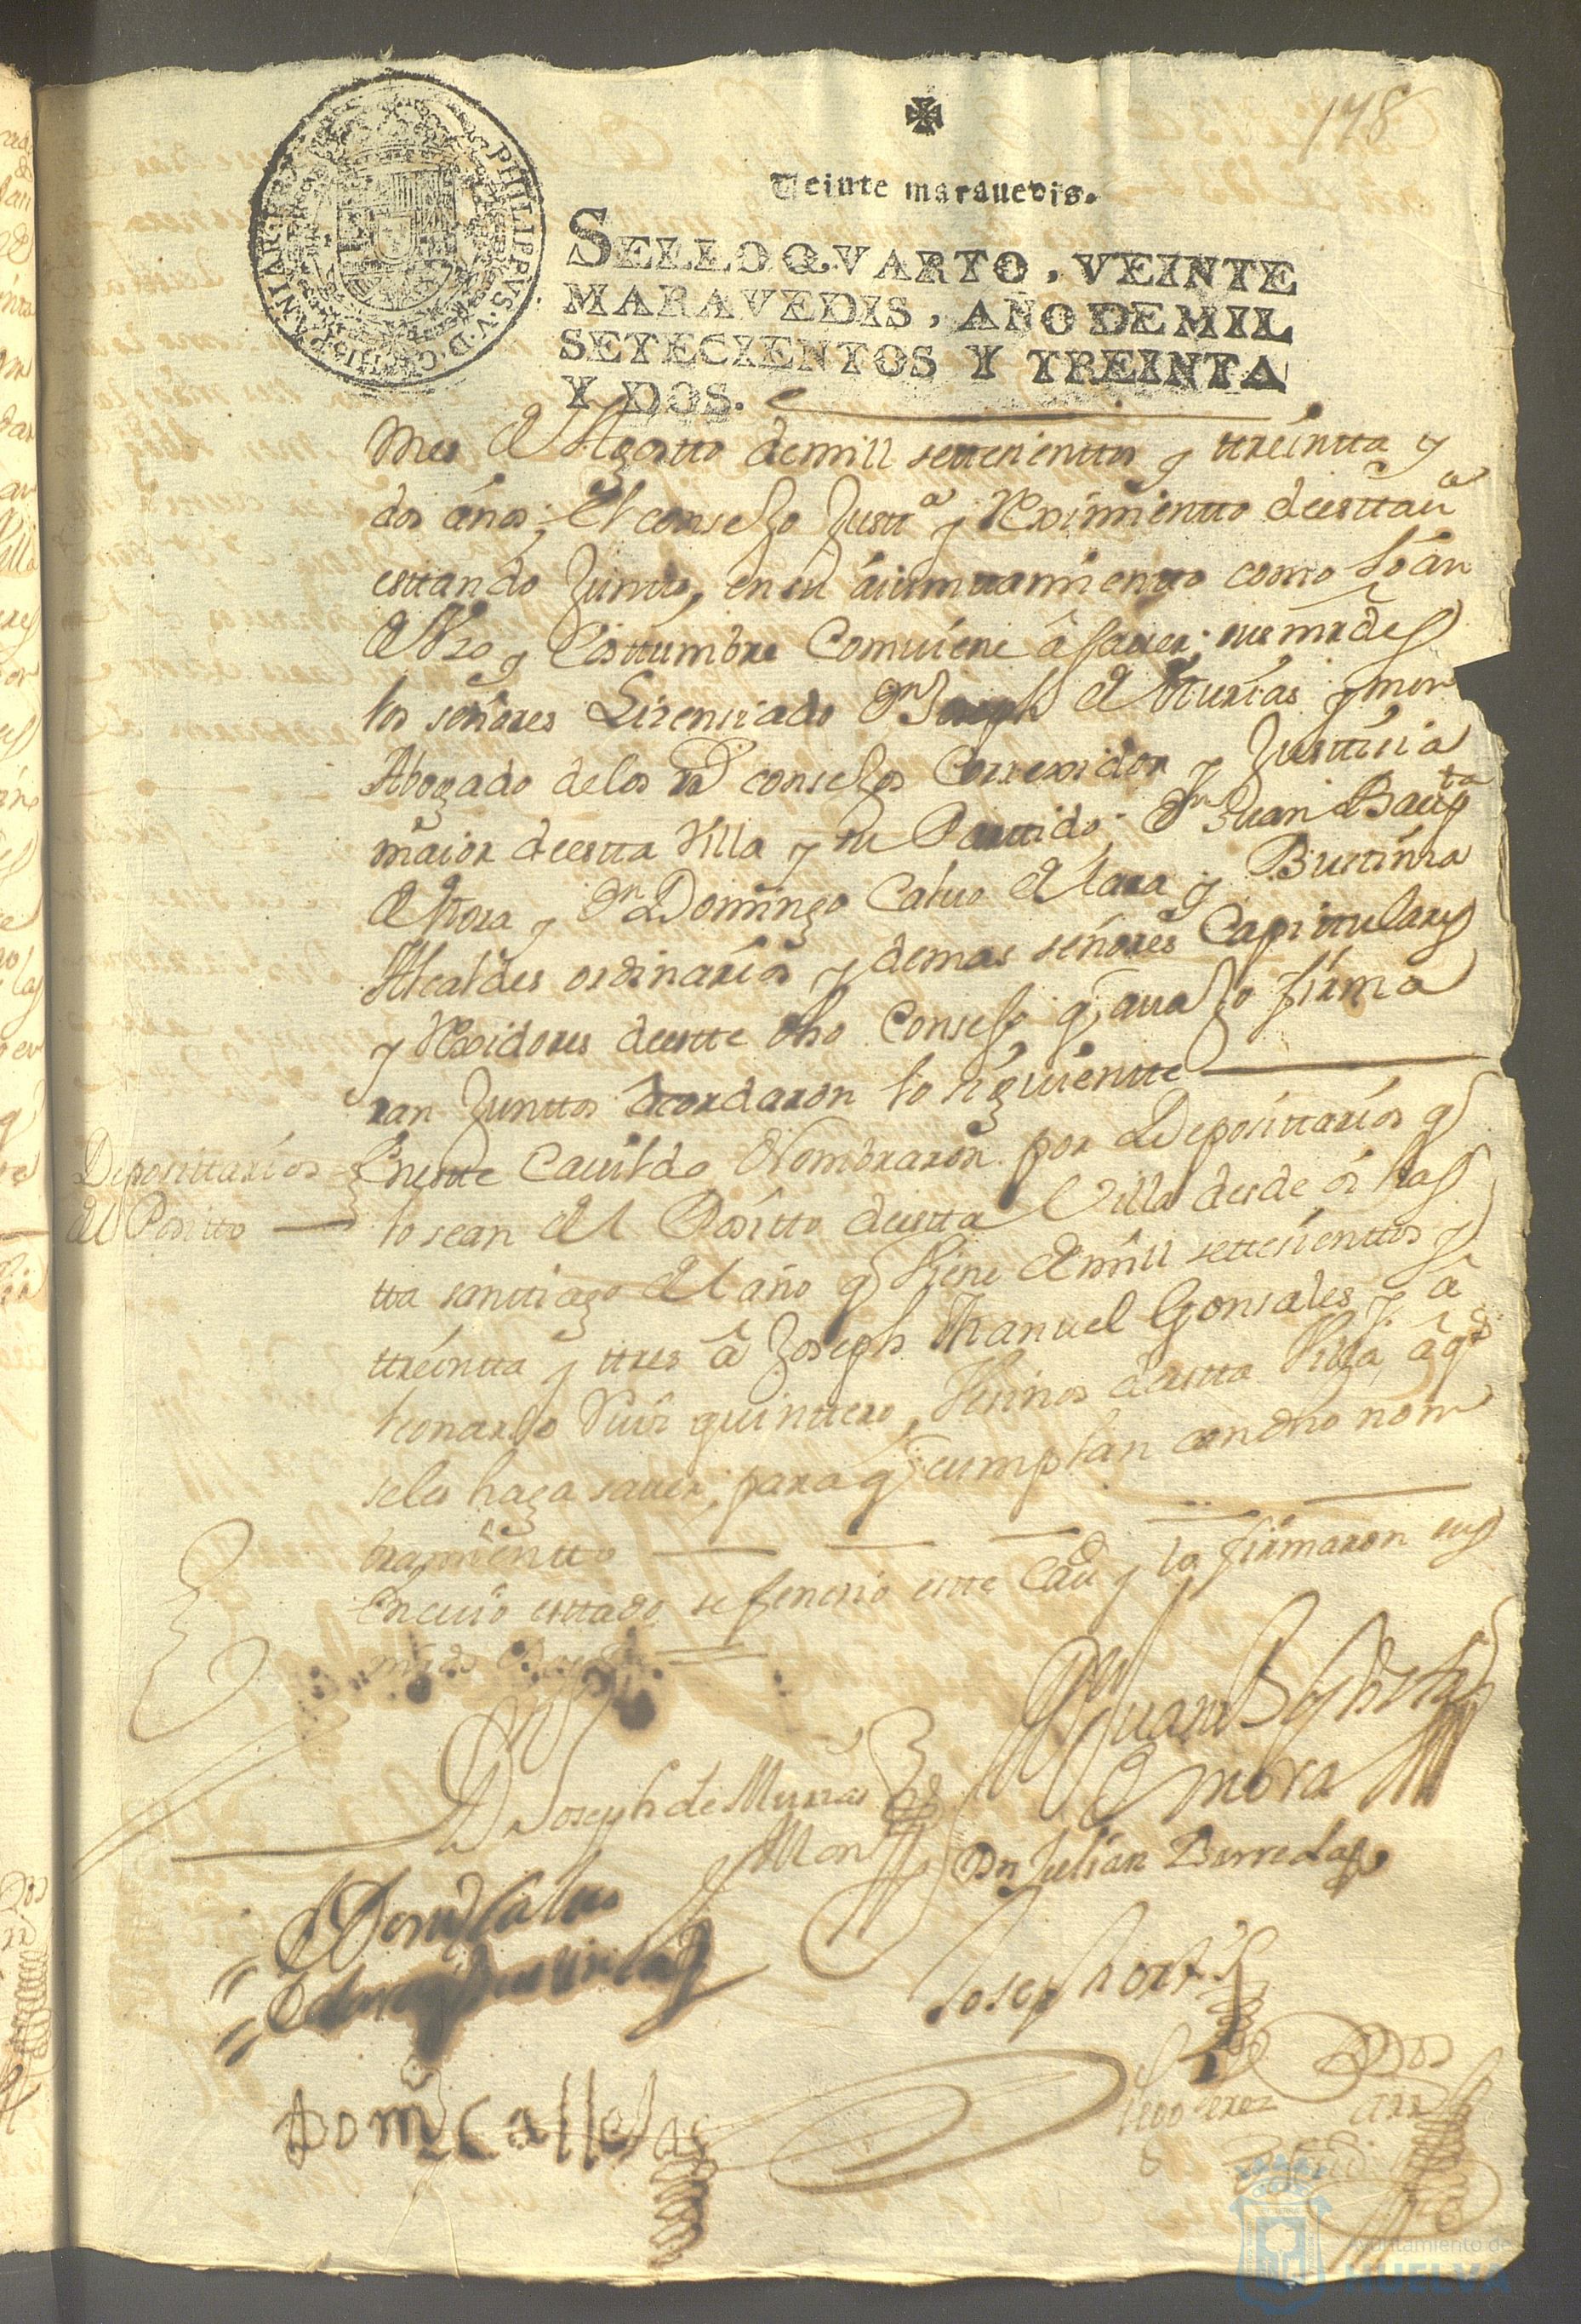 178
Veinte maravedis.
SELLO QVARTO, VEINTE
MARAVEDIS, AÑO DE MIL
SETECIENTOS Y TREINTA
Y DOS.
PHILIPPVS. V. D. G. HISPANIAR.
mes de Agostto de mill settesienttos y ttreintta y
dos años; El consejo Justtª y Reximientto de estta vª
esttando Junttos en su aiunttamientto como lo an
de Vzo y Costtumbre Combiene â saver; sus mrdes
los señores Lisensiado Dn Joseph de Murias y mon
Abogado de los Rs consejos Correxidor y Justtisia
maior de estta Villa y su Parttido; Dn Juan Bauptta
de Mora y Dn Domingo Calvo de lara y Bustinsa
Alcaldes ordinarios y demas señores Capittulares
y Rexidores de estte dho Consejo q avajo firma
ran Junttos acordaron lo siguientte
Deposittarios
del Positto
En estte Cavildo Nombraron por Deposittarios q
lo sean del Positto de estta Villa desde oi has
tta santtiago del año q Viene de mill settesienttos y
ttreintta y ttres â Joseph Manuel Gonsales y â
leonardo Ruis quinttero, Vesinos de estta Villa, â qs
se les haga saver, para q cumplan con dho nom
bramientto
En cuio esttado se fenesio estte Cavd y lo firmaron sus
mrds
Dn Juan Bapttista
de Mora
Dn Joseph de Murias
y Mon
Dn Julian Barreda
Domgo Calvo
de lara y Bustinsa
Joseph ortis
Domgo Callejas
perez
Ayuntamiento de
HUELVA